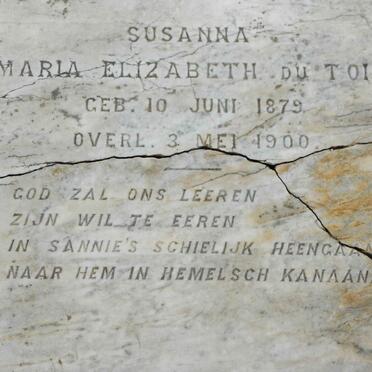 SUSANNA
MARIA ELIZABETH DU TOI
GEB. 10 JUNI 1879
OVERL. 3 MEI 1900
GOD ZAL ONS LEEREN
ZIJN WIL TE EEREN
IN SANNIE'S SCHIELIJK HEENGAAN
NAAR HEM IN HEMELSCH KANAÄN